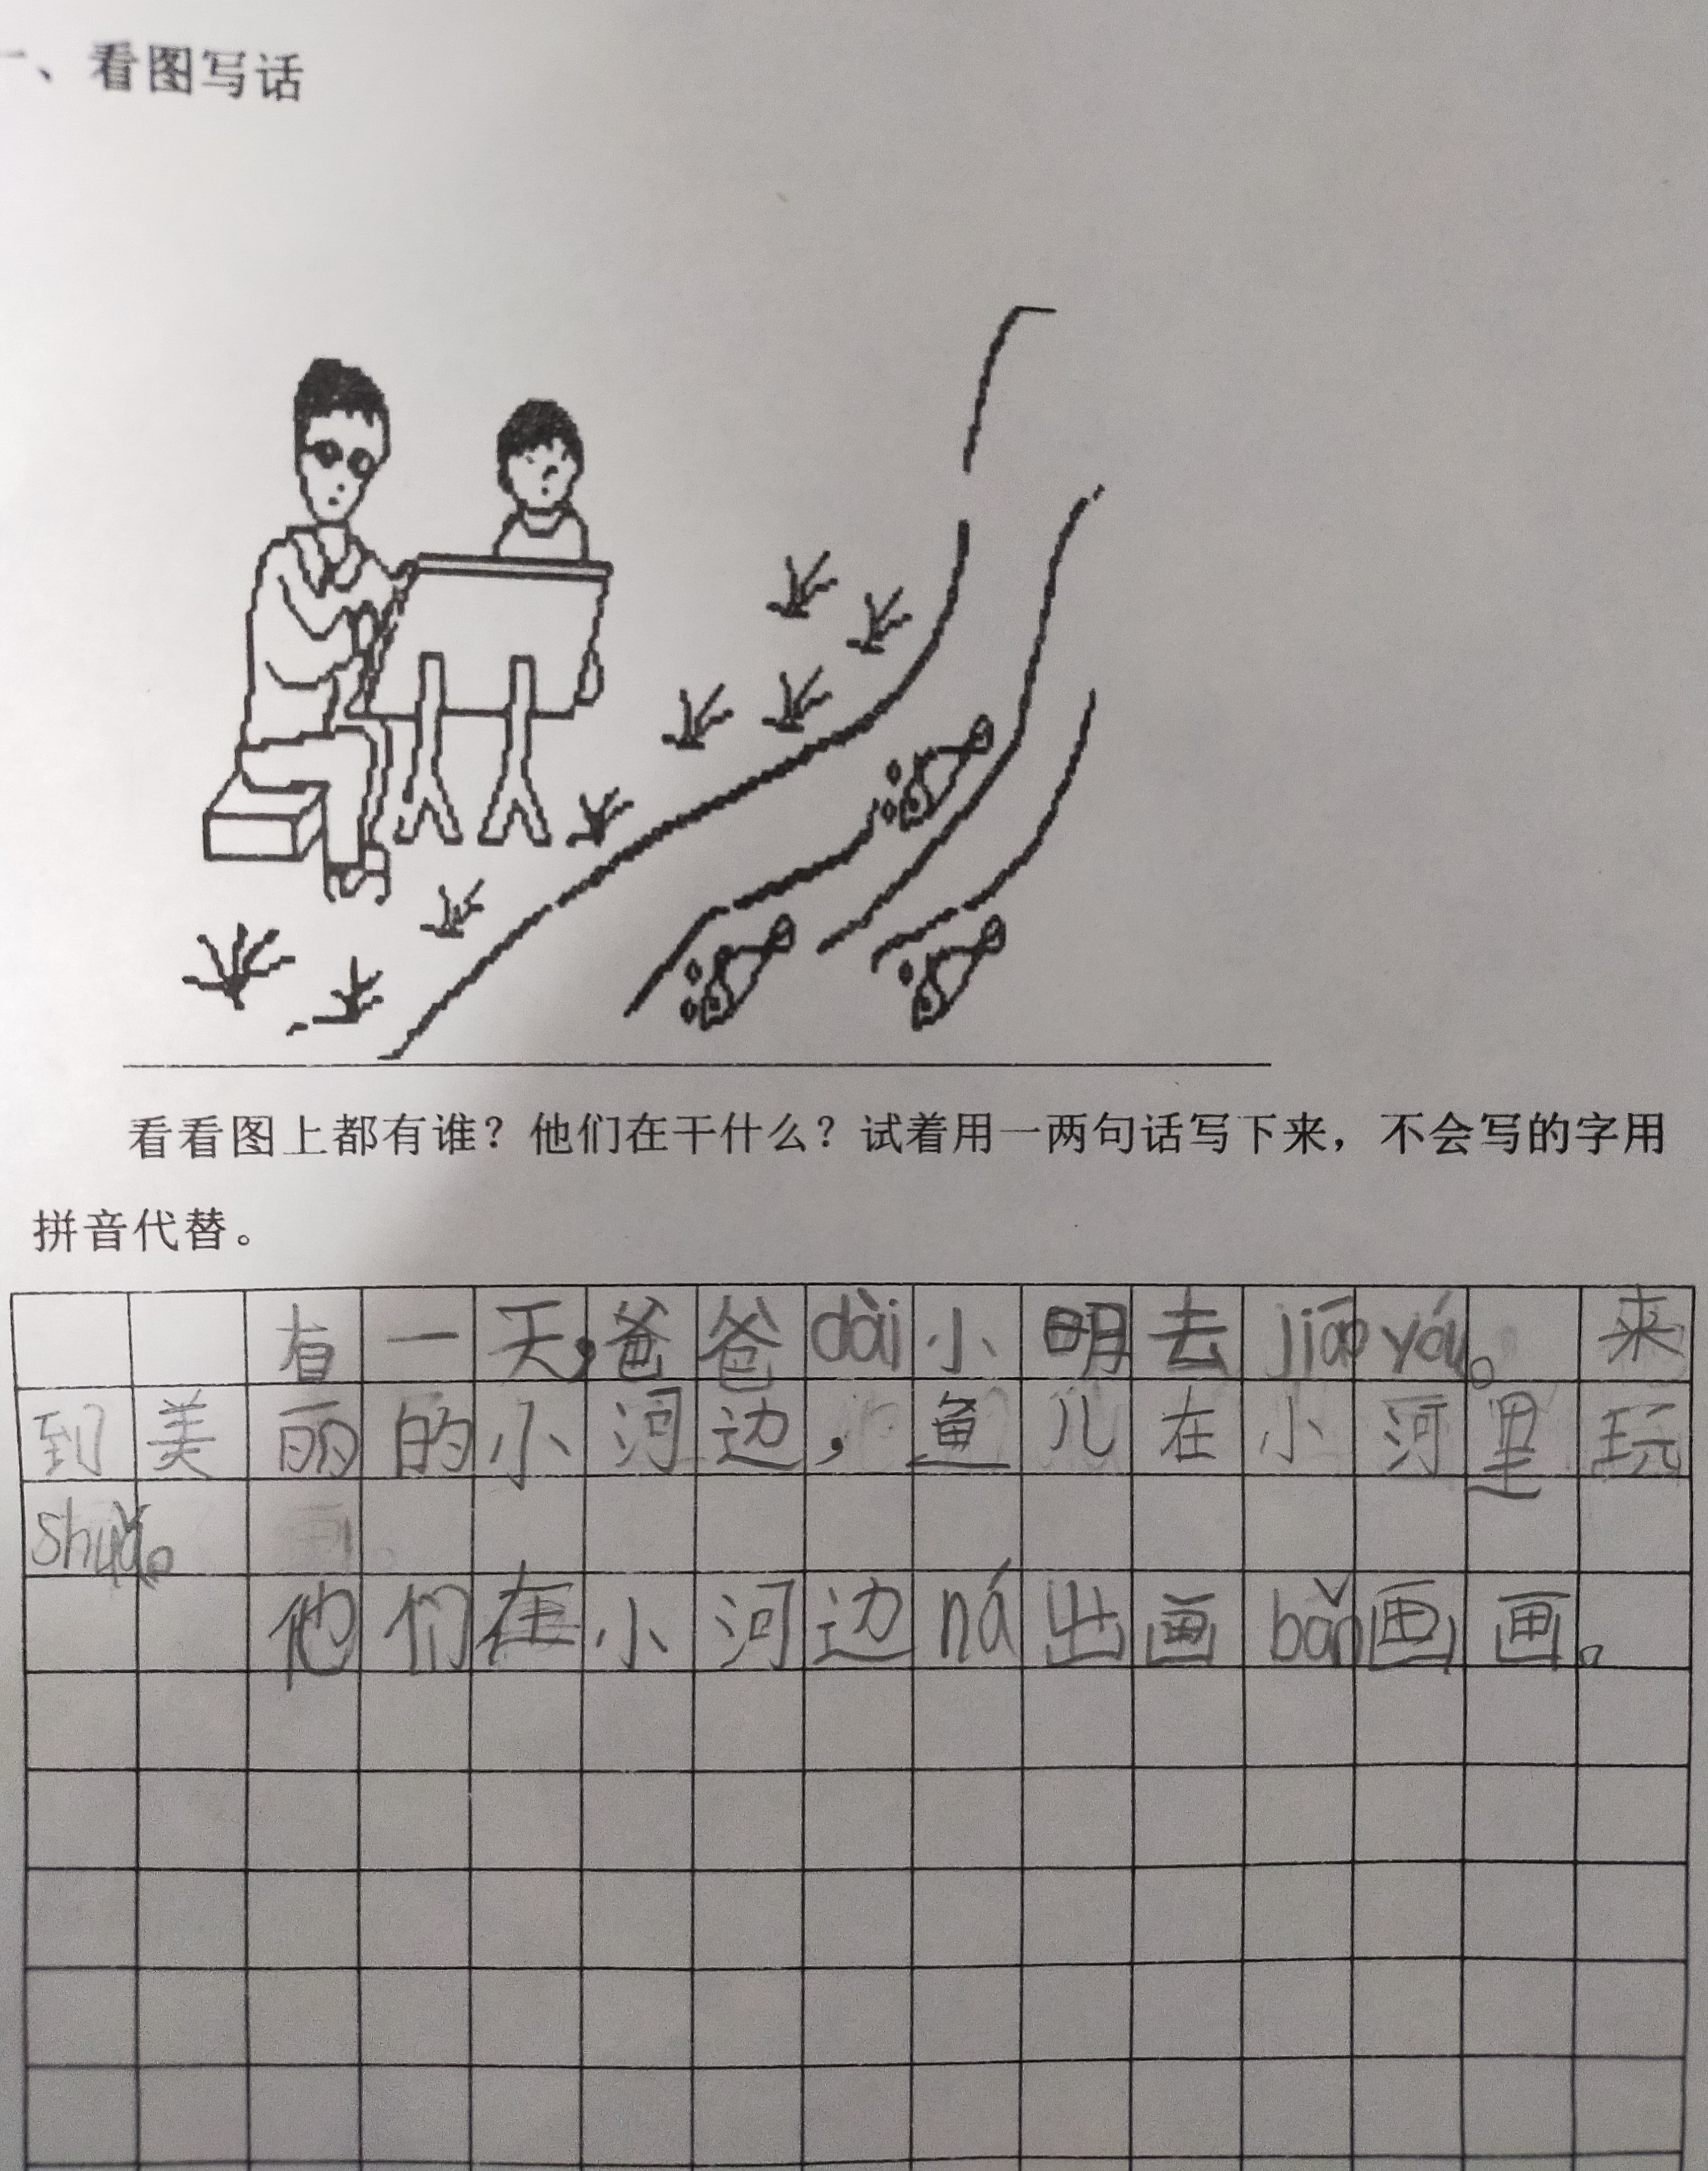 一、看图写话
看看图上都有谁？他们在干什么？试着用一两句话写下来，不会写的字用
拼音代替。
有一天，爸爸dài小明去jiāo yóu。来
到美丽的小河边，鱼儿在小河里玩
shuǎ。
他们在小河边ná出画bǎn画画。